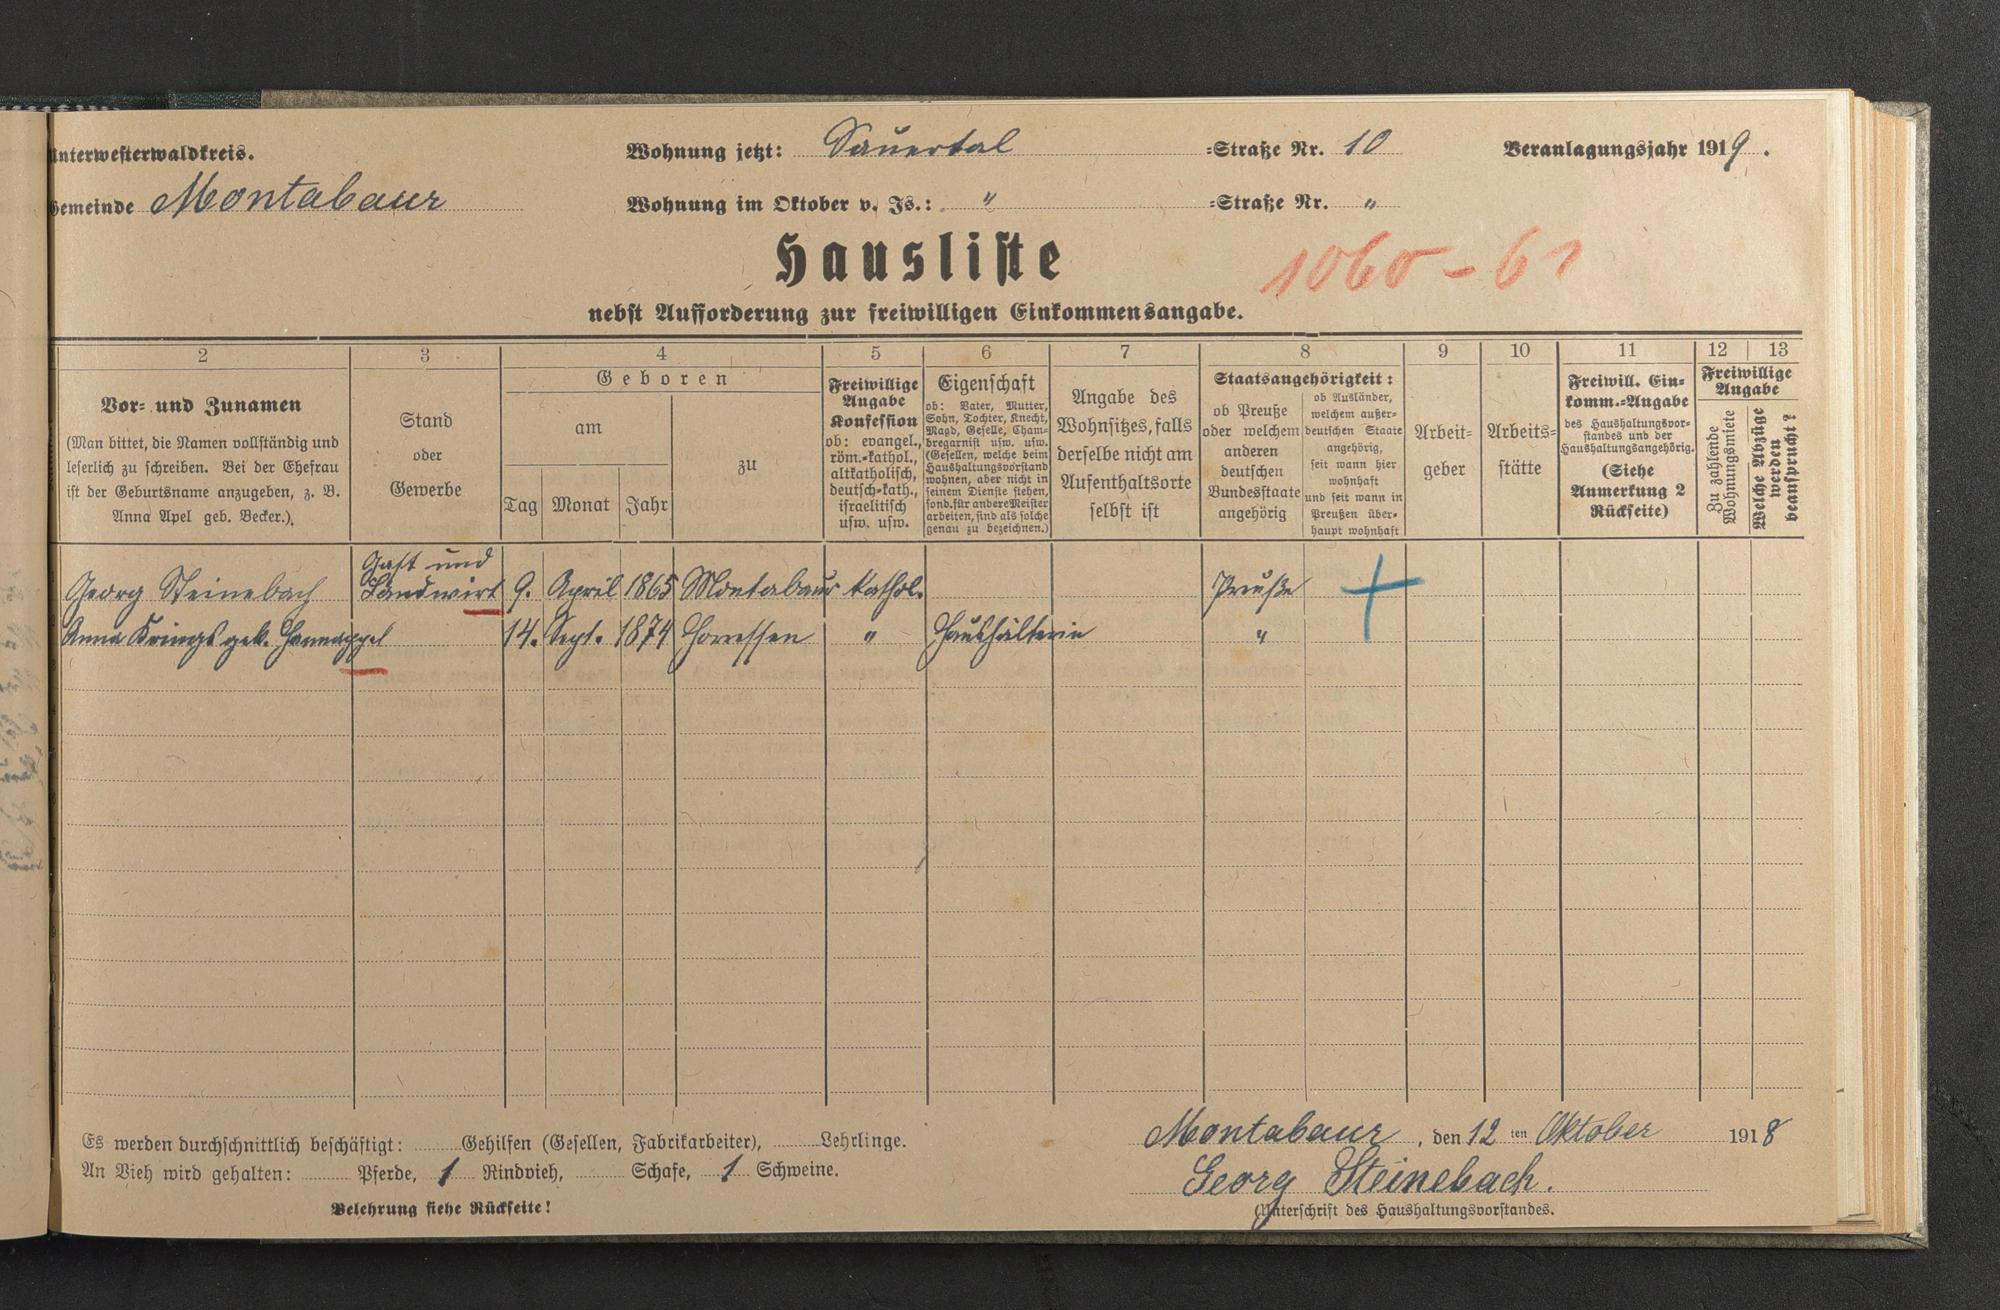 Unterwesterwaldkreis.
Wohnung jetzt: Sauertal =Straße Nr. 10
Veranlagungsjahr 1919.
Gemeinde Montabaur
Wohnung im Oktober v. Js.: " =Straße Nr. "
Hausliste
1060-61
nebst Aufforderung zur freiwilligen Einkommensangabe.
2 3 4 5 6 7 8 9 10 11 12 13
Vor- und Zunamen
(Man bittet, die Namen vollständig und
leserlich zu schreiben. Bei der Ehefrau
ist der Geburtsname anzugeben, z. B.
Anna Apel geb. Becker.)
Stand
oder
Gewerbe
Geboren
am
Tag Monat Jahr
zu
Freiwillige
Angabe
Konfession
ob: evangel.,
röm.-kathol.,
altkatholisch,
deutsch-kath.,
israelitisch
usw. usw.
Eigenschaft
ob: Vater, Mutter,
Sohn, Tochter, Knecht,
Magd, Geselle, Cham-
bregarnist usw. usw.
(Gesellen, welche beim
Haushaltungsvorstand
wohnen, aber nicht in
seinem Dienste stehen,
sond. für andere Meister
arbeiten, sind als solche
genau zu bezeichnen.)
Angabe des
Wohnsitzes, falls
derselbe nicht am
Aufenthaltsorte
selbst ist
Staatsangehörigkeit:
ob Preuße
oder welchem
anderen
deutschen
Bundesstaate
angehörig
ob Ausländer,
welchem außer-
deutschen Staate
angehörig,
seit wann hier
wohnhaft
und seit wann in
Preußen über-
haupt wohnhaft
Arbeit-
geber
Arbeits-
stätte
Freiwill. Ein-
komm.-Angabe
des Haushaltungsvor-
standes und der
Haushaltungsangehörig.
(Siehe
Anmerkung 2
Rückseite)
Freiwillige
Angabe
Zu zahlende
Wohnungsmiete
Welche Abzüge
werden
beansprucht?
Gast und
Georg Steinebach Landwirt 9. April 1865 Montabaur kathol. Preuße
Anna Krings geb. Hannappel 14. Sept. 1874 Horressen " Haushälterin "
Es werden durchschnittlich beschäftigt: Gehilfen (Gesellen, Fabrikarbeiter), Lehrlinge.
An Vieh wird gehalten: Pferde, 1 Rindvieh, Schafe, 1 Schweine.
Belehrung siehe Rückseite!
Montabaur, den 12 ten Oktober 1918
Georg Steinebach.
(Unterschrift des Haushaltungsvorstandes.